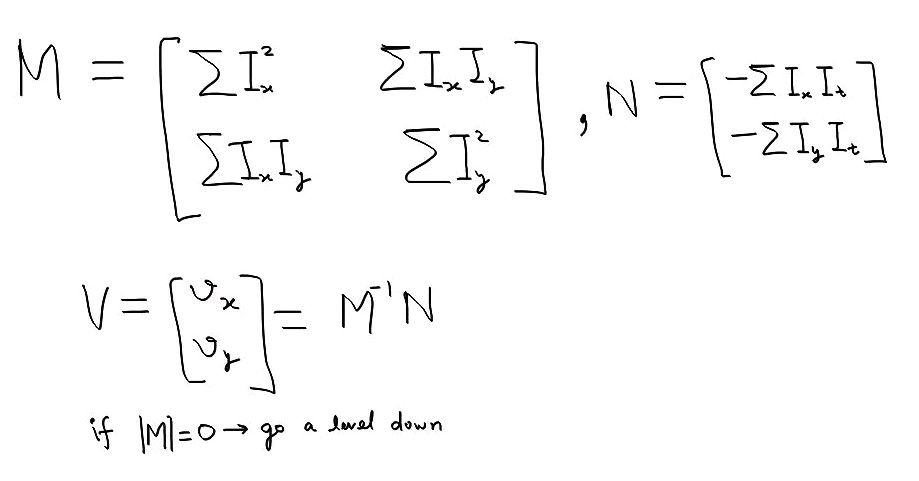 M = [ ∑I_x^2 ∑I_xI_y ; ∑I_xI_y ∑I_y^2 ] , N = [ -∑I_xI_t ; -∑I_yI_t ]
V = [ v_x ; v_y ] = M^-1 N
if |M|=0 → go a level down